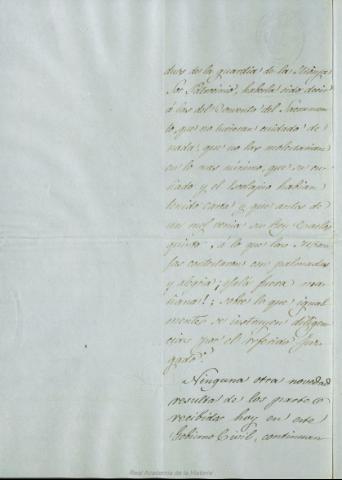 dres de la guardia de la Monja
Sor Patrocinio, haberla oido decir
á las del Convento del Sacramen
to, que no tuviesen cuidado de
nada, que no las molestarian
en lo mas minimo, que su cu
ñado y el
tenido carta y que antes de
un mes venia su Rey Carlos
quinto, á lo que las
sas contestaron con palmadas
y alegria; ¡ojalá fuera ma
ñana!; sobre lo que igual
mente se instruyen diligen
cias por el referido Juz
gado.
Ninguna otra novedad
resulta de los partes
recibidos hoy en este
Gobierno Civil, continuan
Real Academia de la Historia